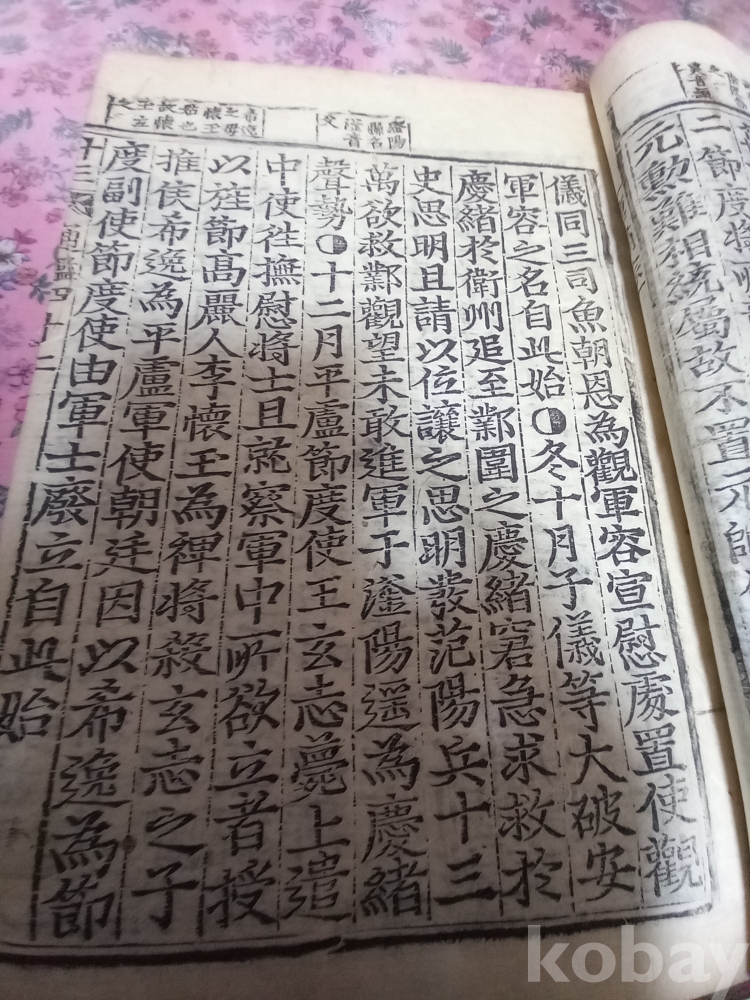 二節度將
元勳難相統屬故不置元帥
滏陽
縣名
滏音
父
希逸
之母
懷玉
姑也
故懷
玉立
之
儀同三司魚朝恩為觀軍容宣慰處置使觀
軍容之名自此始冬十月子儀等大破安
慶緒於衛州追至鄴圍之慶緒窘急求救於
史思明且請以位讓之思明發范陽兵十三
萬欲救鄴觀望未敢進軍于滏陽遥為慶緒
聲勢十二月平盧節度使王玄志薨上遣
中使徃撫慰將士且就察軍中所欲立者授
以旌節高麗人李懷玉為裨將殺玄志之子
推侯希逸為平盧軍使朝廷因以希逸為節
度副使節度使由軍士廢立自此始
通鑑四十二
kobay